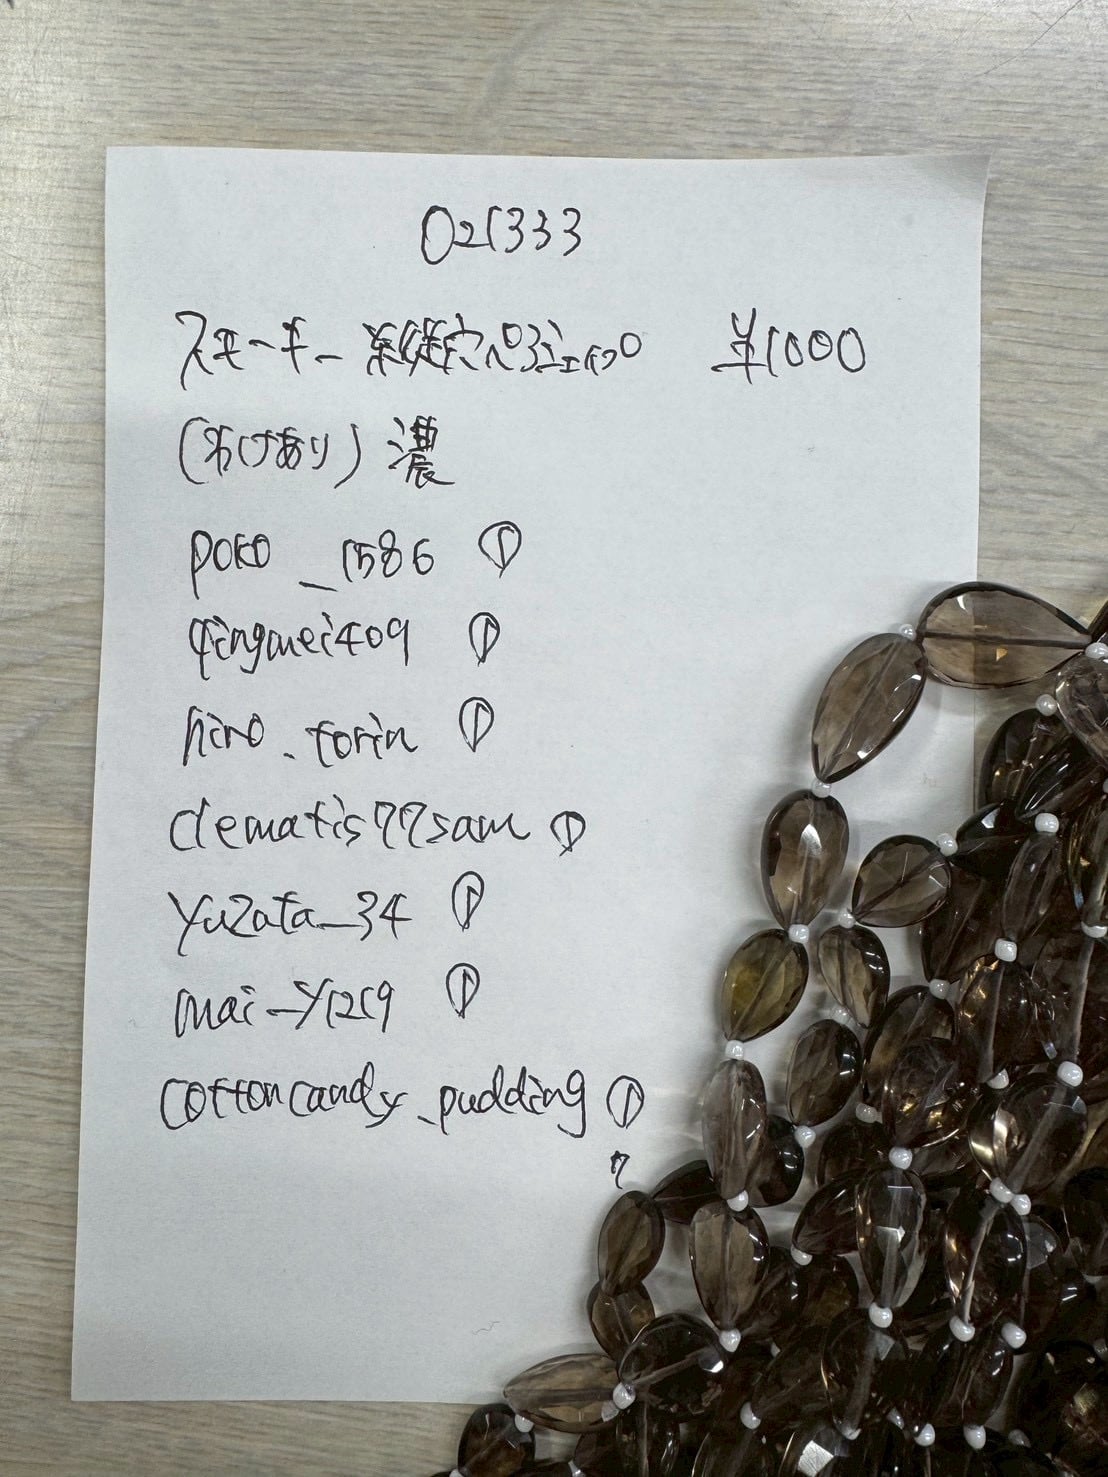 021333
スモーキー 糸縦穴ペアシェイプ ¥1000
(わけあり) 濃
poko_1586 ①
qingmei409 ①
hiro.forin ①
clematis77sam ①
yuzata_34 ①
mai_y1219 ①
cottoncandy.pudding ①
7